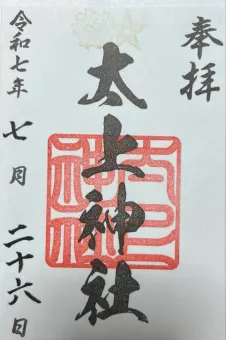 奉拝
太上神社
令和七年 七月 二十六日